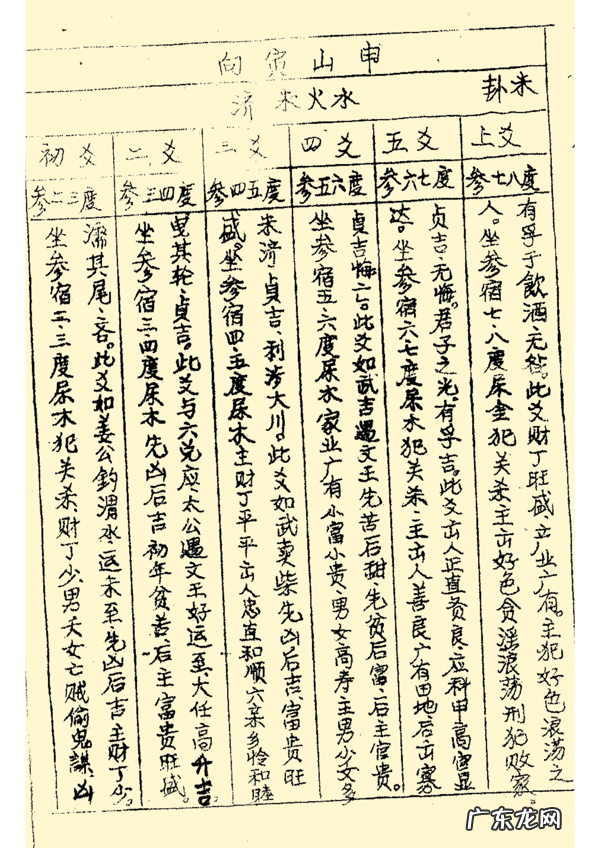 申山寅向
未卦
水火未济
上爻
参七八度
有孚于飲酒,无咎。此爻财丁旺盛,立业广有。主犯好色浪荡之
人。坐参宿七、八度尿金犯关杀主出好色贪淫浪荡刑犯败家。
五爻
参六七度
贞吉,无悔。君子之光,有孚吉。此爻出人正直贤良,应科甲高官显
达。坐参宿六七度尿木犯关杀,主出人善良广有田地后出寡
四爻
参五六度
贞吉悔亡。此爻如武吉遇文王先苦后甜,先贫后富,后主官贵。
坐参宿五、六度尿水家业广有小富小贵,男女高寿主男少女多
三爻
参四五度
未济,贞吉,利涉大川。此爻如武卖柴先凶后吉,富贵旺
盛。坐参宿四、五度尿木主财丁平平出人忠直和顺六亲乡怜和睦
二爻
参三四度
曳其轮,贞吉。此爻与六兑应太公遇文王好运至大任高升吉。
坐参宿三、四度尿木先凶后吉初年贫苦,后主富贵旺盛。
初爻
参二三度
濡其尾,吝。此爻如姜公釣渭水,运未至先凶后吉主财丁少。
坐参宿二、三度尿木犯关杀财丁少男夭女亡贼偷鬼謀凶
广东龙网